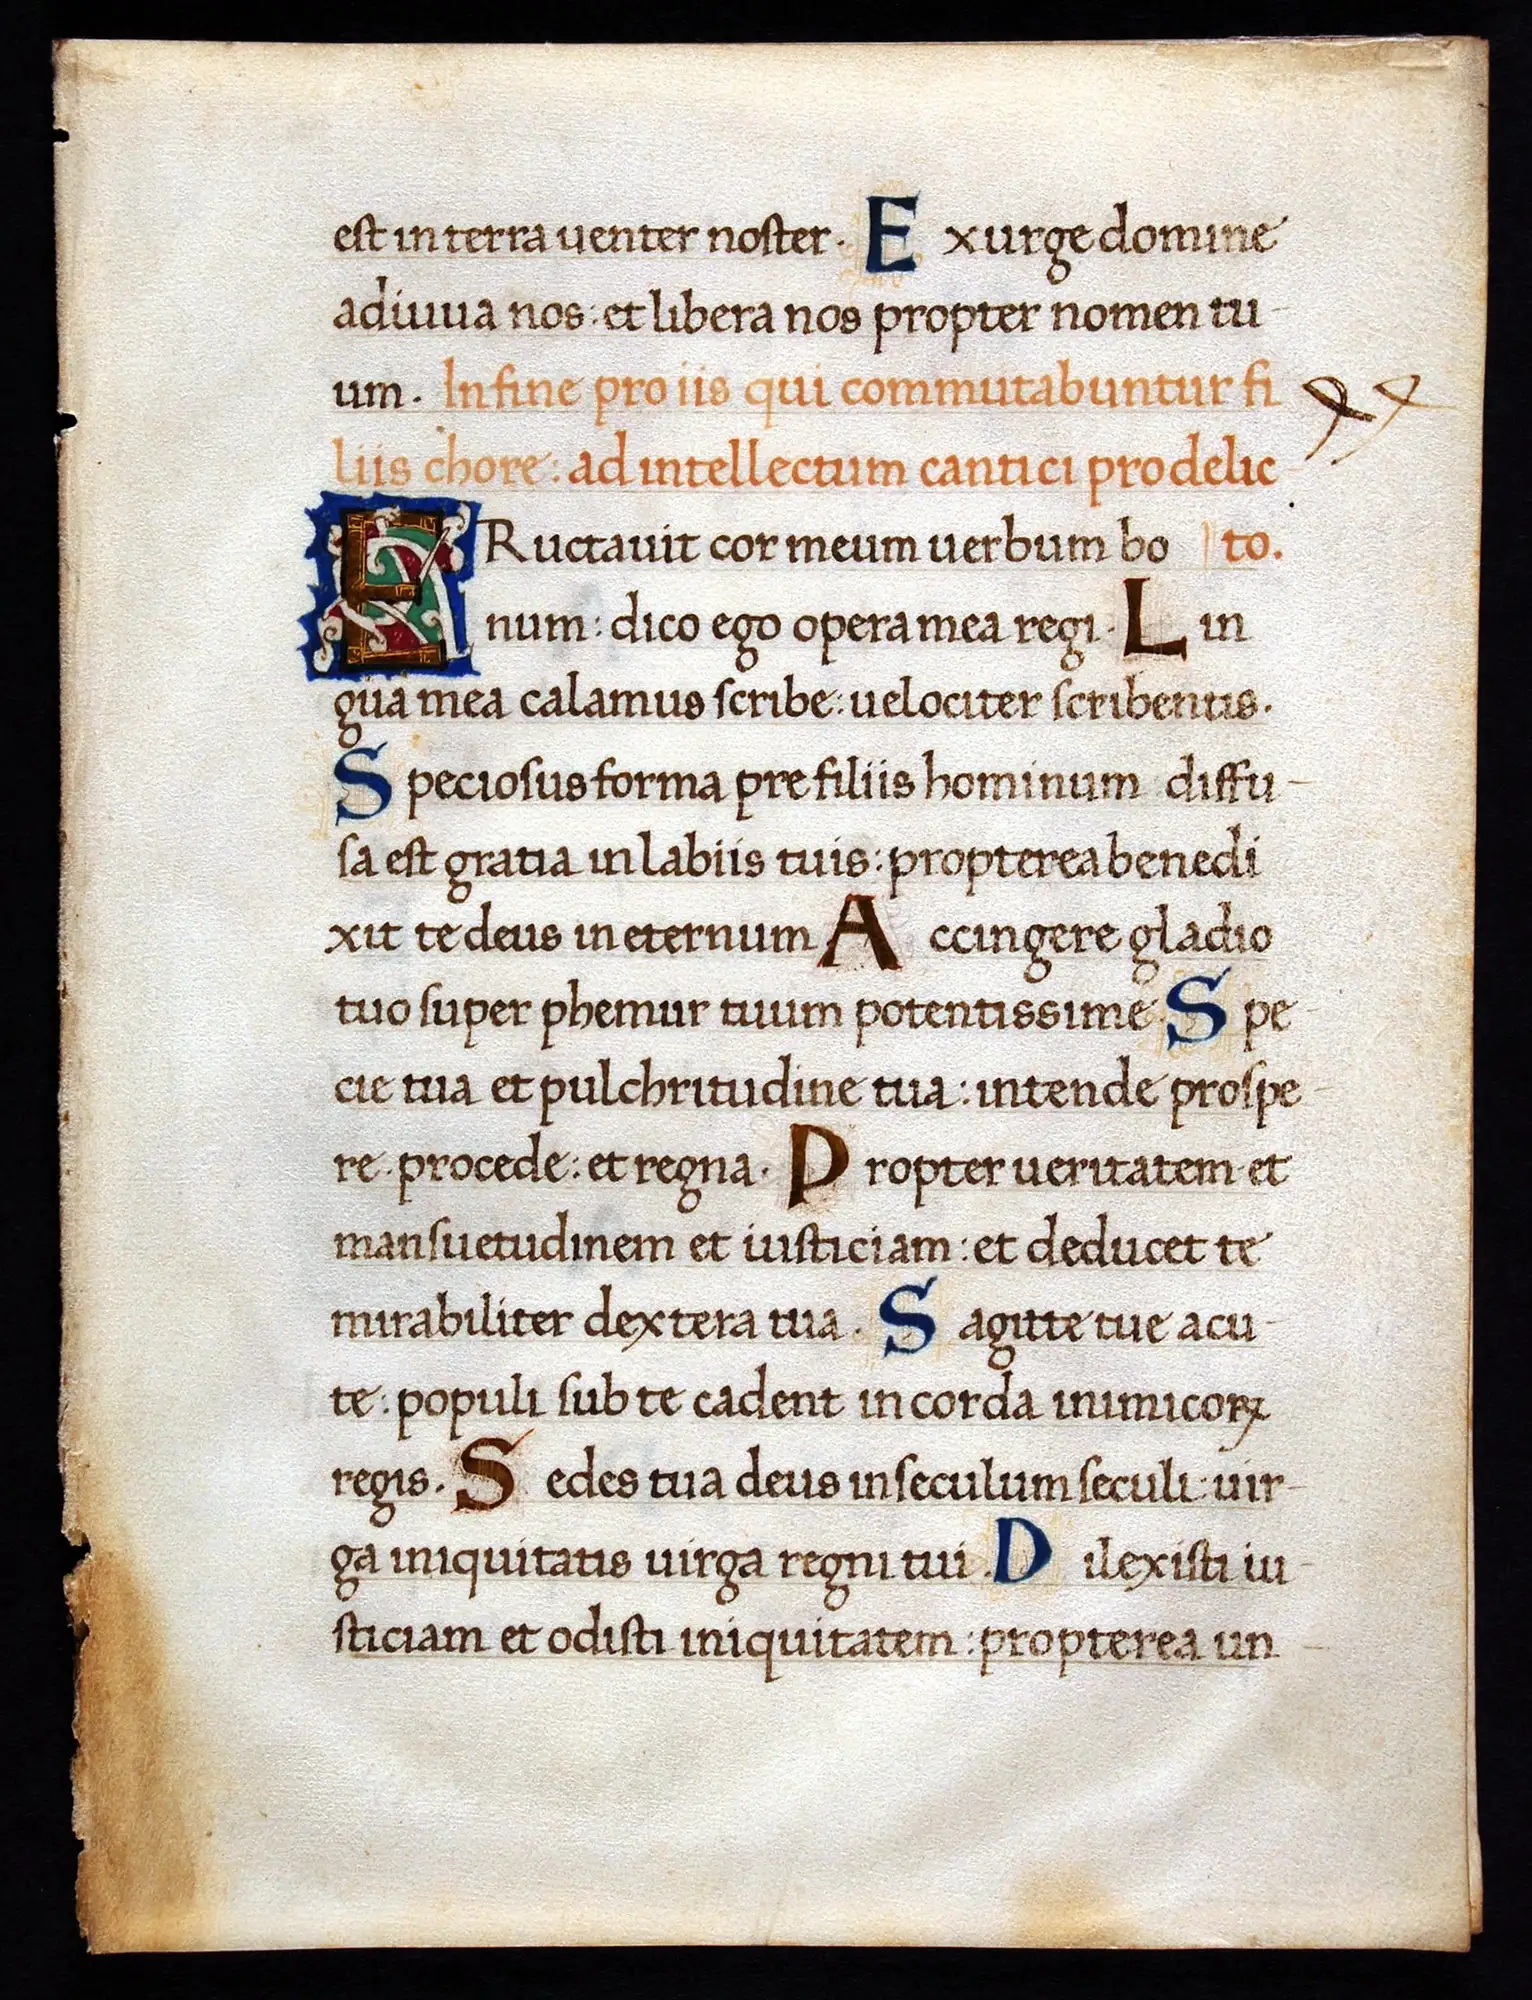 est in terra uenter noster. Exurge domine
adiuua nos: et libera nos propter nomen tu
um. In fine pro iis qui commutabuntur fi
liis chore: ad intellectum cantici pro delic
ERuctauit cor meum uerbum bo to.
num: dico ego opera mea regi. Lin
gua mea calamus scribe: uelociter scribentis.
Speciosus forma pre filiis hominum diffu
sa est gratia in labiis tuis: propterea benedi
xit te deus in eternum Accingere gladio
tuo super phemur tuum potentissime. Spe
cie tua et pulchritudine tua: intende prospe
re. procede: et regna. Propter ueritatem et
mansuetudinem et iusticiam: et deducet te
mirabiliter dextera tua. Sagitte tue acu
te: populi sub te cadent in corda inimicoꝝ
regis. Sedes tua deus in seculum seculi: uir
ga iniquitatis uirga regni tui. Dilexisti iu
sticiam et odisti iniquitatem: propterea un